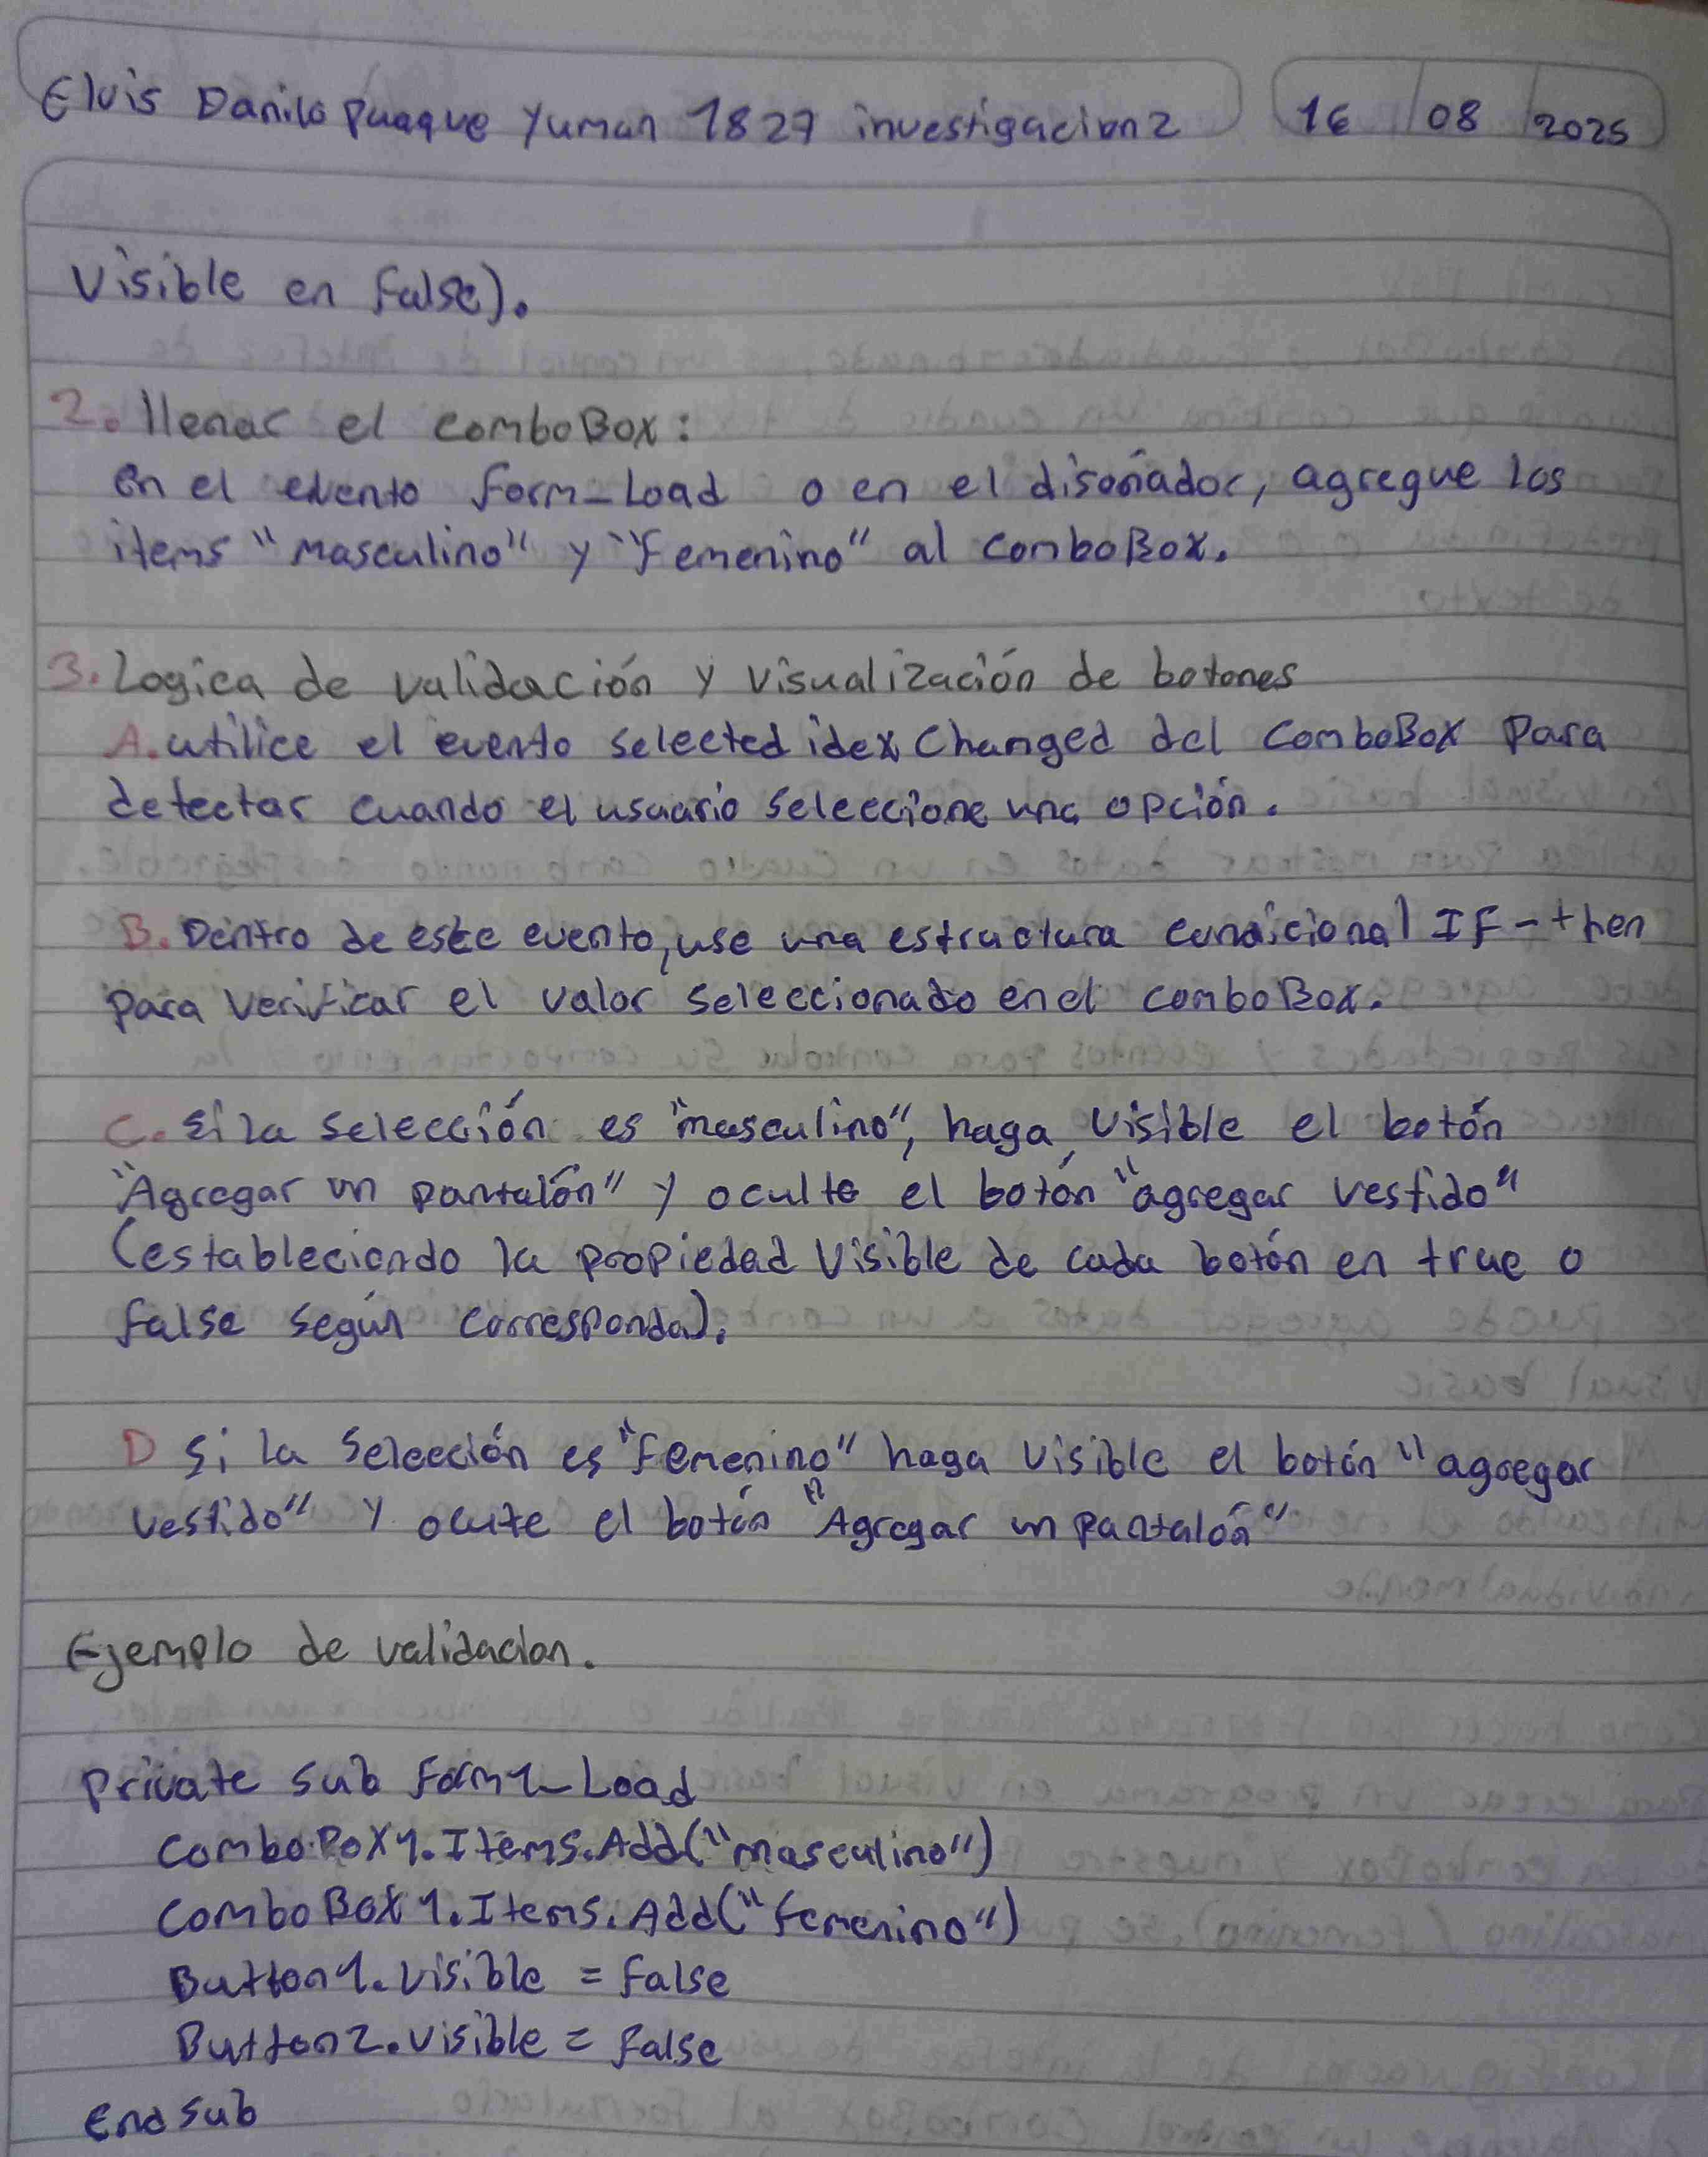 Elvis Danilo Puaque Yuman 1827 investigacion2 16 08 2025
Visible en false).
2. llenar el comboBox:
en el evento form_Load o en el diseñador, agregue los
items "Masculino" y "Femenino" al comboBox.
3. Logica de validación y visualización de botones
A. utilice el evento selected idex Changed del ComboBox para
detectar cuando el usuario seleccione una opción.
B. Dentro de este evento, use una estructura condicional IF-then
para verificar el valor seleccionado en el comboBox.
C. Si la selección es "masculino", haga visible el botón
"Agregar un pantalón" y oculte el botón "agregar vestido"
(estableciendo la propiedad Visible de cada botón en true o
false según corresponda).
D Si la Selección es "femenino" haga visible el botón "agregar
vestido" y oculte el botón "Agregar un pantalón"
Ejemplo de validacion.
private sub form1_Load
comboBox1.Items.Add("masculino")
comboBox1.Items.Add("femenino")
Button1.visible = false
Button2.visible = false
end sub